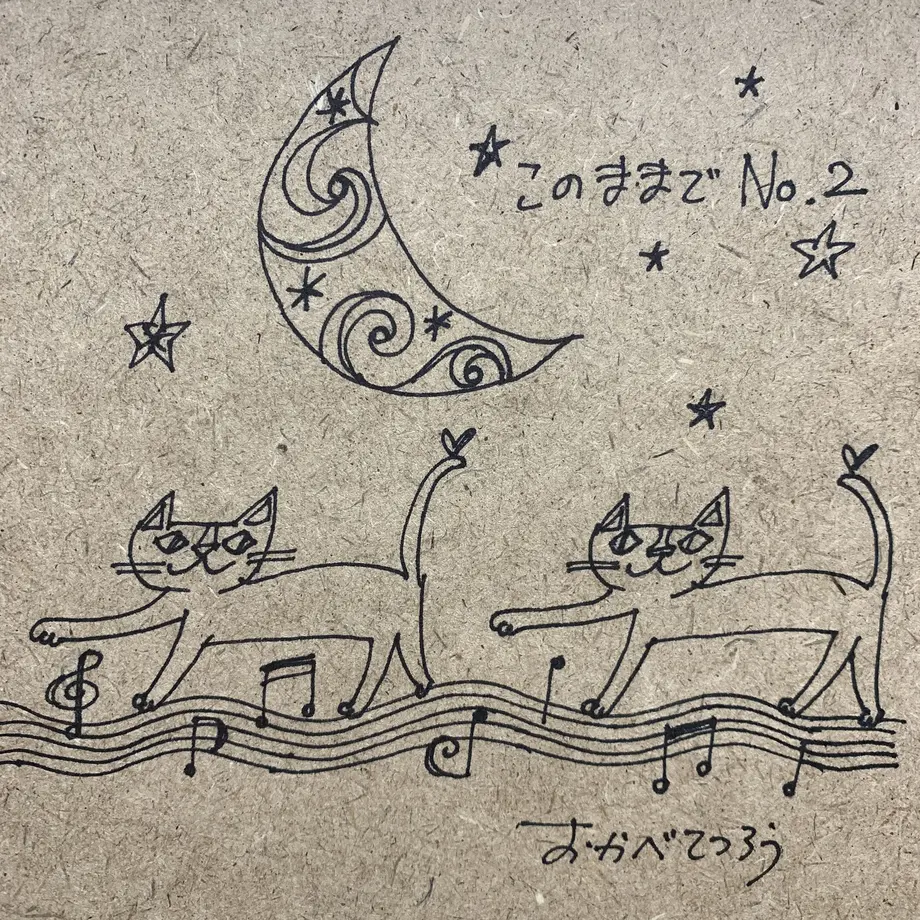 このままで No.2
おかべてつろう